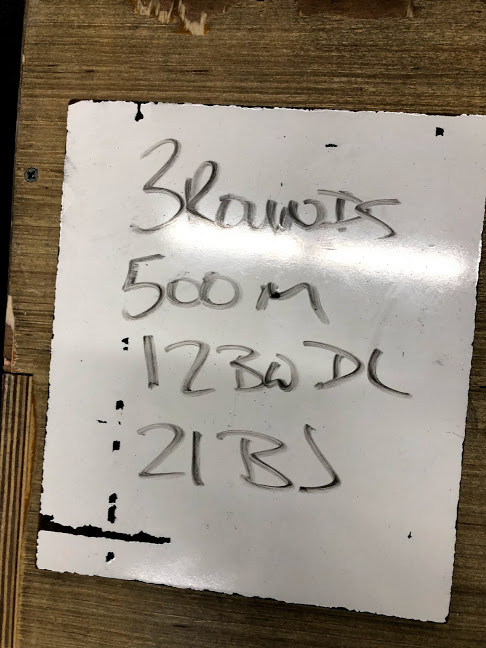 3 Rounds
500 M
12 BW DL
21 BJ